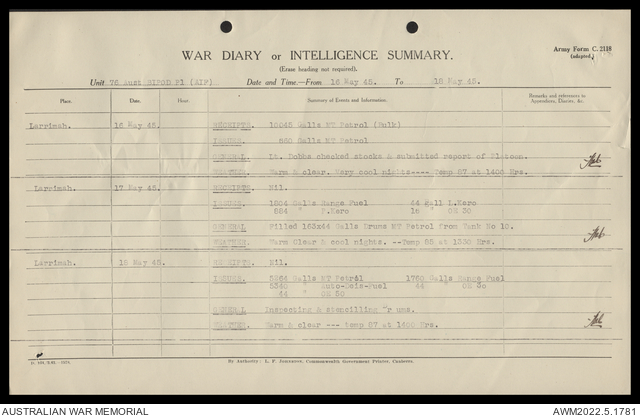 Army Form C. 2118
(adapted.)
WAR DIARY or INTELLIGENCE SUMMARY.
(Erase heading not required).
Unit 76 Aust BIPOD Pl (AIF) Date and Time.—From 16 May 45. To 18 May 45.
Place. Date. Hour. Summary of Events and Information. Remarks and references to Appendices, Diaries, &c.
Larrimah. 16 May 45. RECEIPTS. 10045 Galls MT Petrol (Bulk)
ISSUES. 880 Galls MT Petrol
GENERAL Lt. Dobbs checked stocks & submitted report of Platoon.
WEATHER. Warm & clear. Very cool nights---- Temp 87 at 1400 Hrs.
Larrimah. 17 May 45. RECEIPTS Nil.
ISSUES. 1804 Galls Range Fuel 44 Gall L.Kero
884 " P.Kero " OE 30
GENERAL Filled 163x44 Galls Drums MT Petrol from Tank No 10.
WEATHER. Warm Clear & cool nights. --Temp 85 at 1330 Hrs.
Larrimah 18 May 45. RECEIPTS. Nil.
ISSUES. 5264 Galls MT Petrol 1760 Galls Range Fuel
5340 Auto-Deis-Fuel 44 " OE 30
44 " OE 50
GENERAL Inspecting & stencilling "r ums.
WEATHER. Warm & clear --- temp 87 at 1400 Hrs.
By Authority: L. F. Johnston, Commonwealth Government Printer, Canberra.
AUSTRALIAN WAR MEMORIAL AWM2022.5.1781